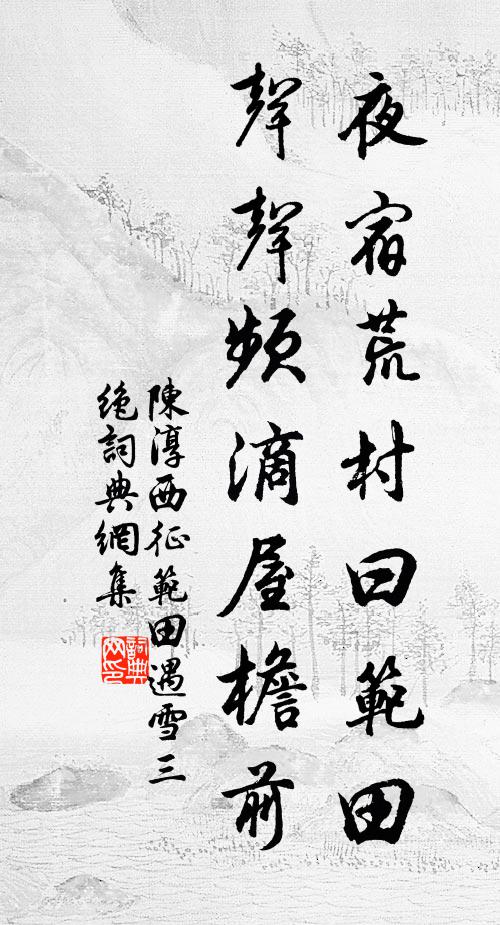 夜宿荒村曰範田
聲聲頻滴屋檐前
陳淳西征範田遇雪三
絶詞典網集